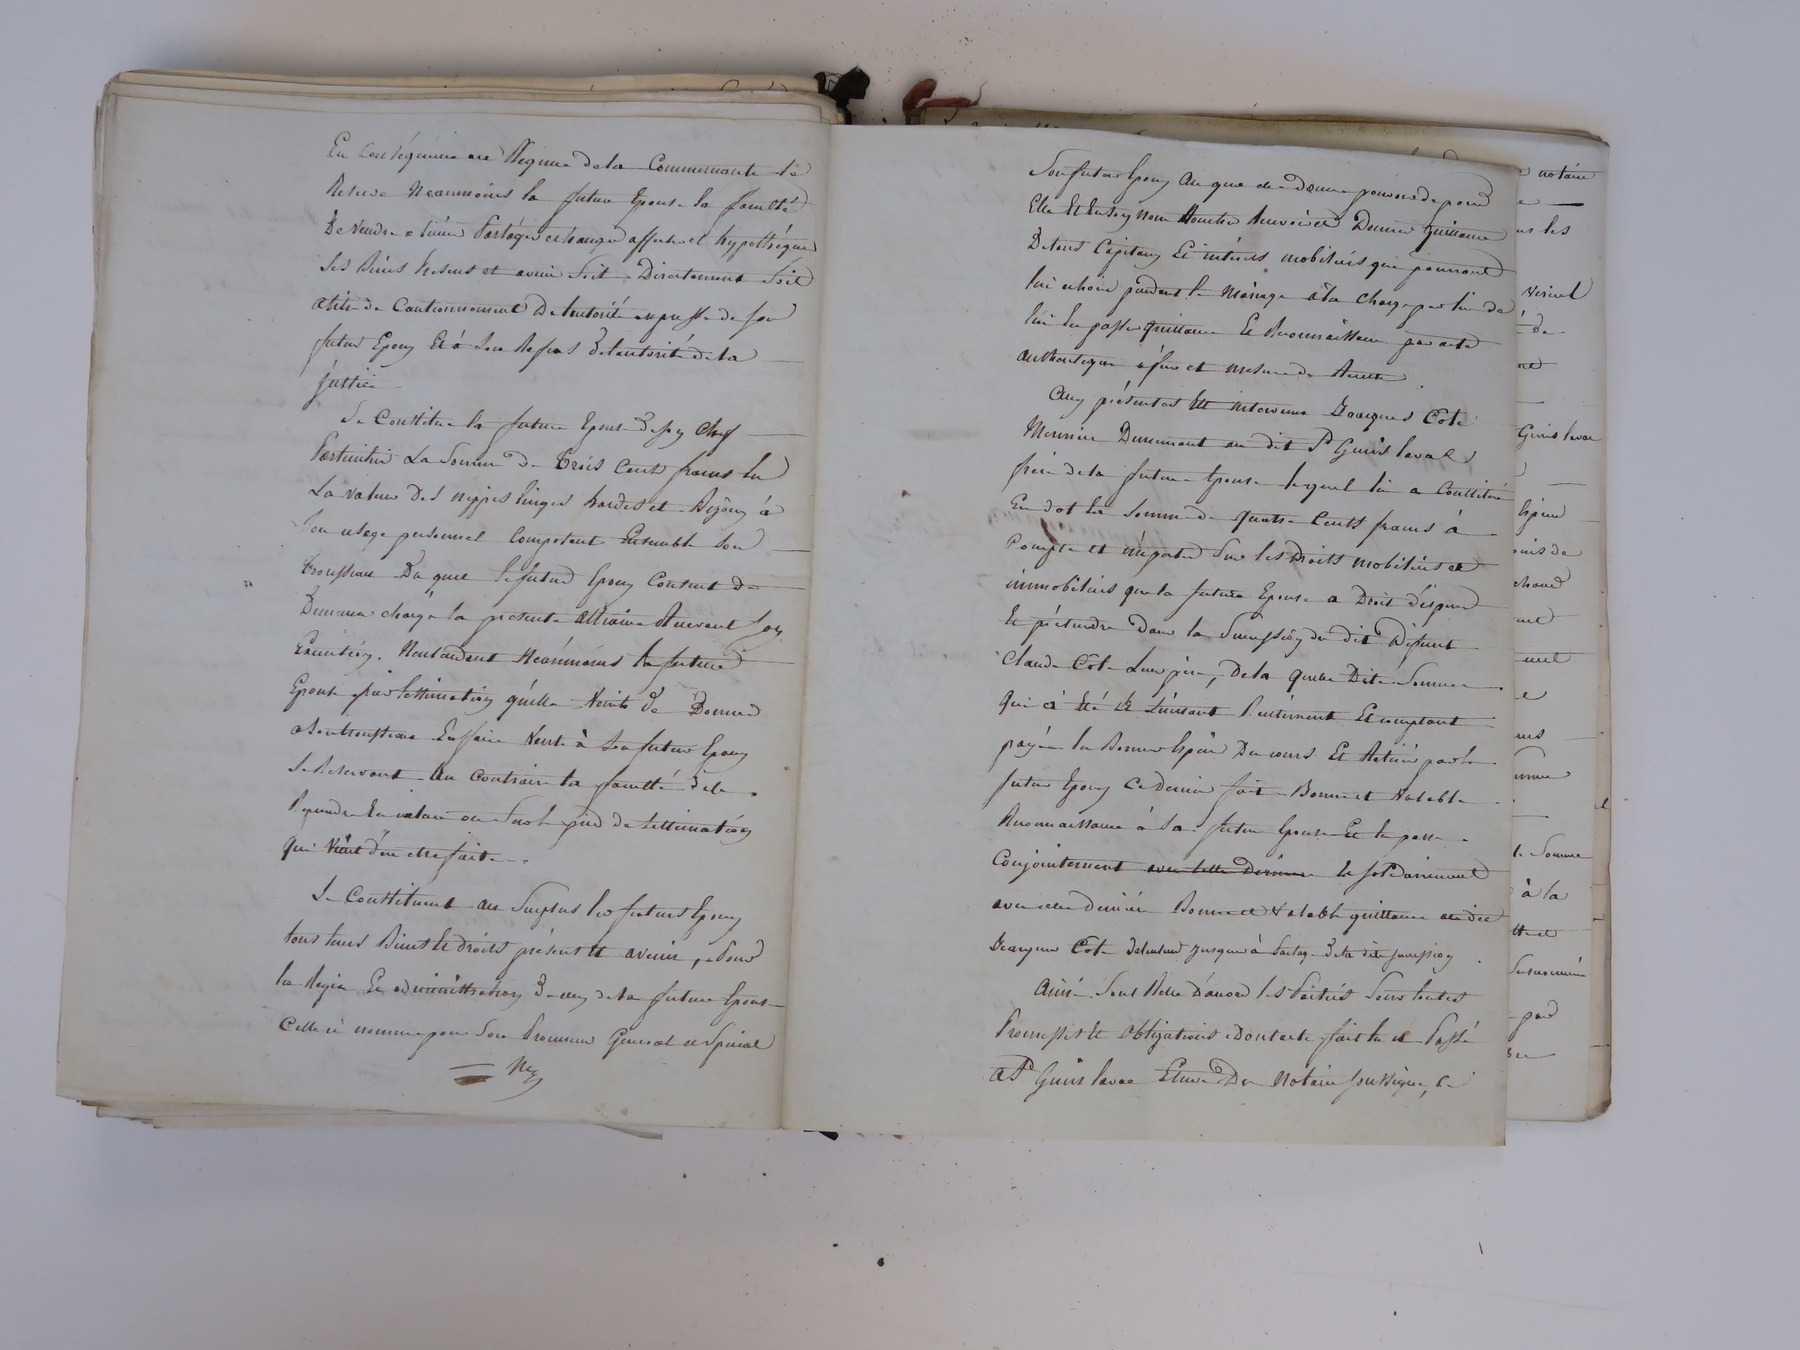 En Conséquence au Regime de la Communauté Se
Reserve Neanmoins la future Epouse la faculté
De Vendre aliéner Partager echanger affecter et hypothéquer
Ses Biens présens et avenir Soit Directement Soit
atitre de Cantonnement De lautorité expresse de son
futur Epoux Et à Son Refus De lautorité de la
justice
Se Constitue la future Epouse de son Chef
Particulier La Somme De Trois Cent francs En
La valeur Des nippes linges hardes et Bijoux à
Son usage personnel Composant Ensemble Son
trousseau Du que le futur Epoux Consent De
Demeurer chargé la présente Recevant Son
Exécution. Nentendant Neanmoins la future
Epouse par lestimation quelle Vient de Donner
a Son trousseau En faire Vente à Son futur Epoux
Se Reservant au Contraire la faculté De le
Reprendre En nature ou Sur le pied de lestimation
qui Vient d'en etre faite.
Se Constituent au Surplus les futurs Epoux
tous leurs Biens et droits présent et avenir, Pour
la Regie Et administration De ceux de la future Epouse
Celle ci nomme pour Son Procureur General et Spécial
Son futur Epoux au que elle donne pouvoir de pour
Elle Et En Son Nom Recevoir et Donner quittance
De tous Capitaux Et intérets mobiliers qui pourront
lui echoir pendant le Mariage à la Charge par lui de
lui En passer quittance Et Reconnaissance par acte
authentique à fur et mesure de
Aux présentes Est intervenu Jacques Côte
Meunier Demeurant au dit St Genis laval
frère de la future Epouse lequel lui a Constitué
En dot la Somme de quatre Cents francs à
Compte et imputer Sur les Droits mobiliers et
immobiliers que la future Epouse a Droit d'éspérer
Et prétendre Dans la Succession du dit Défunt
Claude Côte Leur père, De la quelle Dite Somme
Qui à été Et Comptant
payée En Bonnes Espèces Du cours Et Retirée par le
futur Epoux Ce Dernier fait Bonne et Valable
Reconnaissance à Sa future Epouse Et le passe
Conjointement avec cette Derniere et solidairement
avec cette Dernière Bonne et Valable quittance au dit
Jacques Côte jusques à Partage De la dite Succession
Ainsi Sont Reste D'acord les Parties Sous toutes
Promesses Et Obligations Dont acte fait lu et Passé
A St Genis laval Etude Du Notaire Soussigné, Ce
notaire
Genis laval
Somme
à la